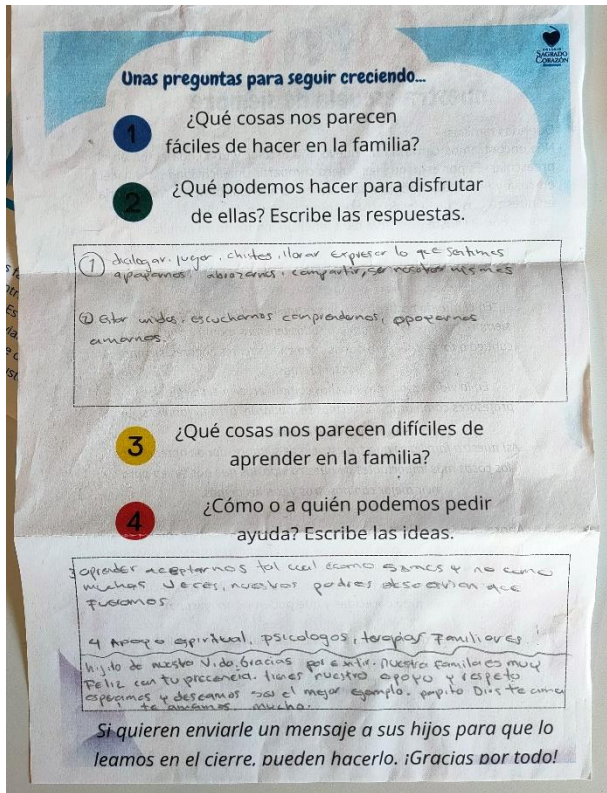 SAGRADO
CORAZÓN
Unas preguntas para seguir creciendo...
1
¿Qué cosas nos parecen
fáciles de hacer en la familia?
2
¿Qué podemos hacer para disfrutar
de ellas? Escribe las respuestas.
1 dialogar, jugar, chistes, llorar expresar lo que sentimos
apoyarnos abrazarnos, compartir, ser nosotros mismos
2 Estar unidos, escucharnos comprendernos, apoyarnos
amarnos.
3
¿Qué cosas nos parecen difíciles de
aprender en la familia?
4
¿Cómo o a quién podemos pedir
ayuda? Escribe las ideas.
3 aprender aceptarnos tal cual como somos y no como
muchas veces, nuestros padres
fueramos.
4 Apoyo espiritual, psicologos, terapias Familiares
hijito de nuestra vida. Gracias por existir. nuestra familia es muy
Feliz con tu precencia. tienes nuestro apoyo y respeto
esperamos y deseamos ser el mejor ejemplo. papito Dios te ama
te amamos mucho.
Si quieren enviarle un mensaje a sus hijos para que lo
leamos en el cierre, pueden hacerlo. ¡Gracias por todo!